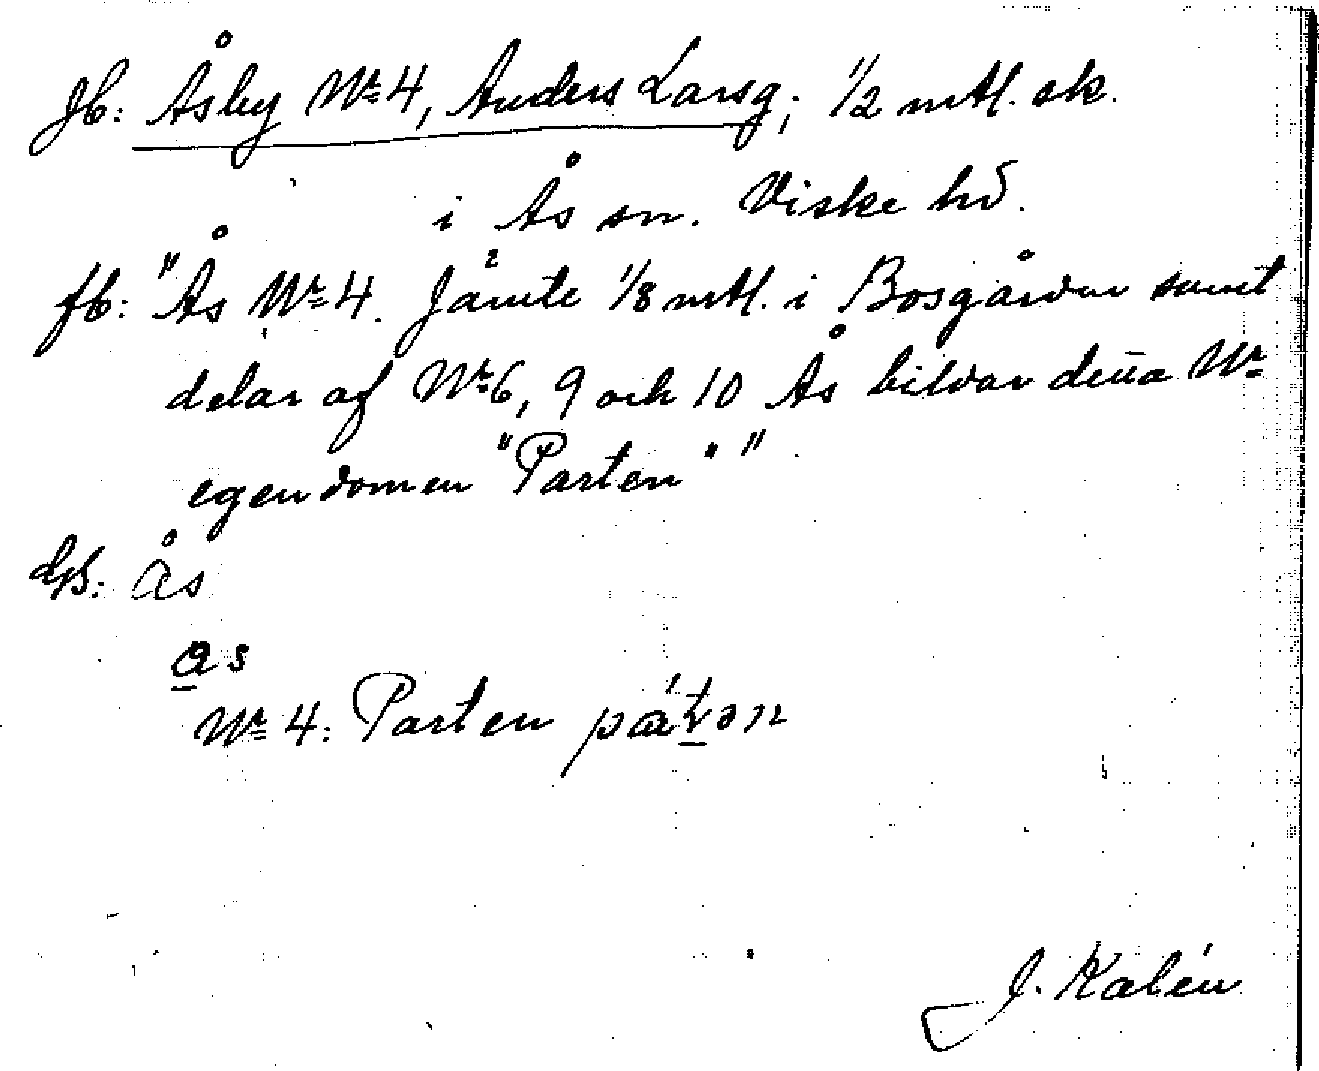 Jb: Åsby Nr 4, Anders Larsg; 1/2 mtl. sk.
i Ås sn. Viske hd.
fb: "Ås Nr 4. Jämte 1/8 mtl. i Bosgården samt
delar af Nr 6, 9 och 10 Ås bildar detta Nr
egendomen "Parten" "
Ås
ås
Nr 4: Parten
J. Kalén